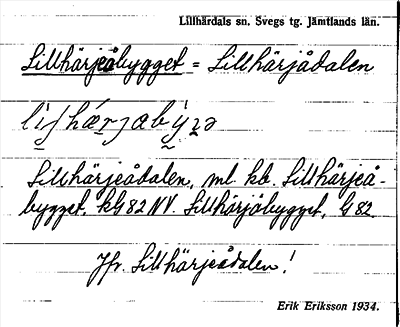 Lillhärdals sn. Svegs tg. Jämtlands län.
Lillhärjeåbygget = Lillhärjådalen
Lillhärjeådalen, ml. kb. Lillhärjeå-
bygget, kG 82 NV. Lillhärjåbygget, G 82.
Jfr. Lillhärjeådalen!
Erik Eriksson 1934.